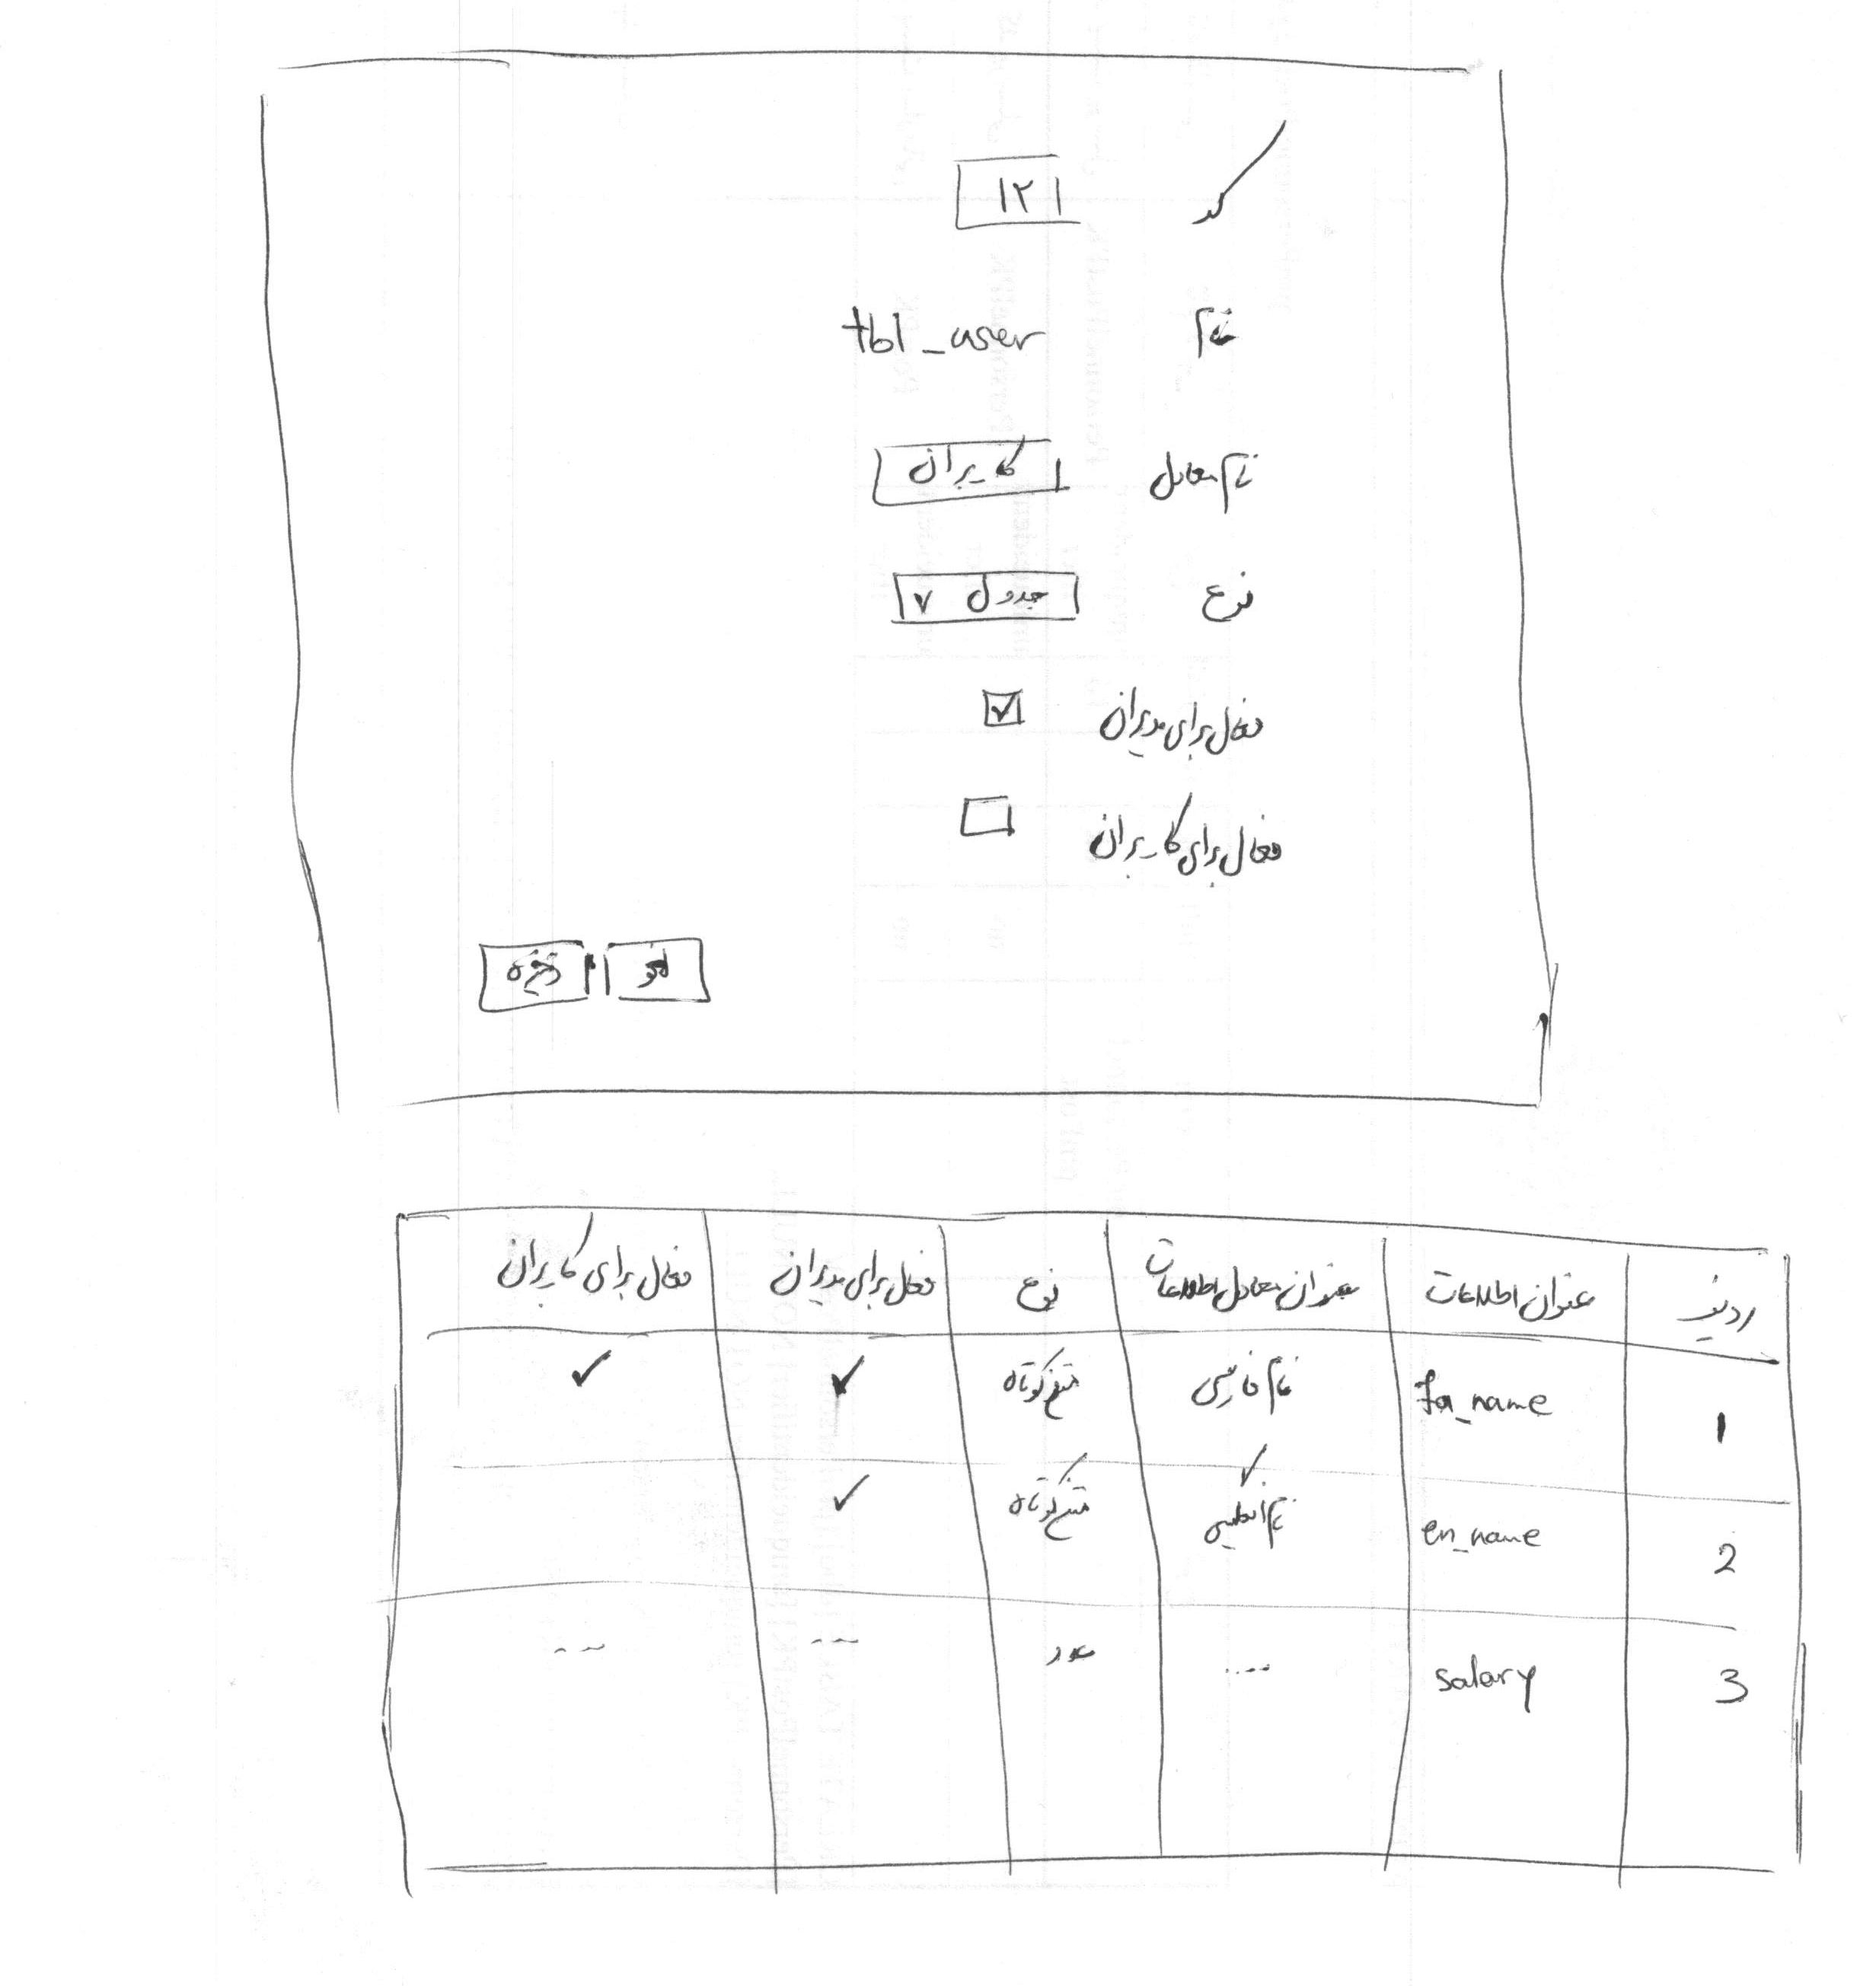 کد ۱۲۱
نام tbl_user
نام معادل کاربران
نوع جدول
فعال برای مدیران
فعال برای کاربران
لغو ذخیره
ردیف عنوان اطلاعات عنوان معادل اطلاعات نوع فعال برای مدیران فعال برای کاربران
1 fa_name نام فارسی متن کوتاه ✓ ✓
2 en_name نام انگلیسی متن کوتاه ✓
3 salary .... عدد --- ---